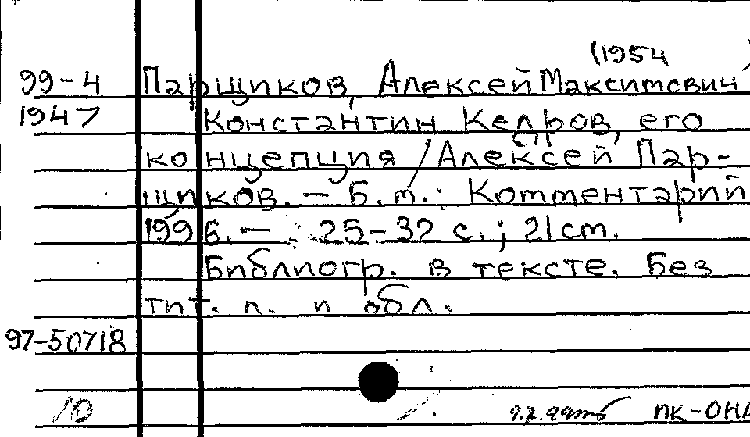 (1954
99-4 Парщиков, Алексей Максимович
1947 Константин Кедров, его
концепция / Алексей Пар-
щиков. — Б. м.: Комментарий
1996. — 25-32 с.; 21 cm.
Библиогр. в тексте. Без
тит. л. и обл.
97-50718
10 ПК-ОНА